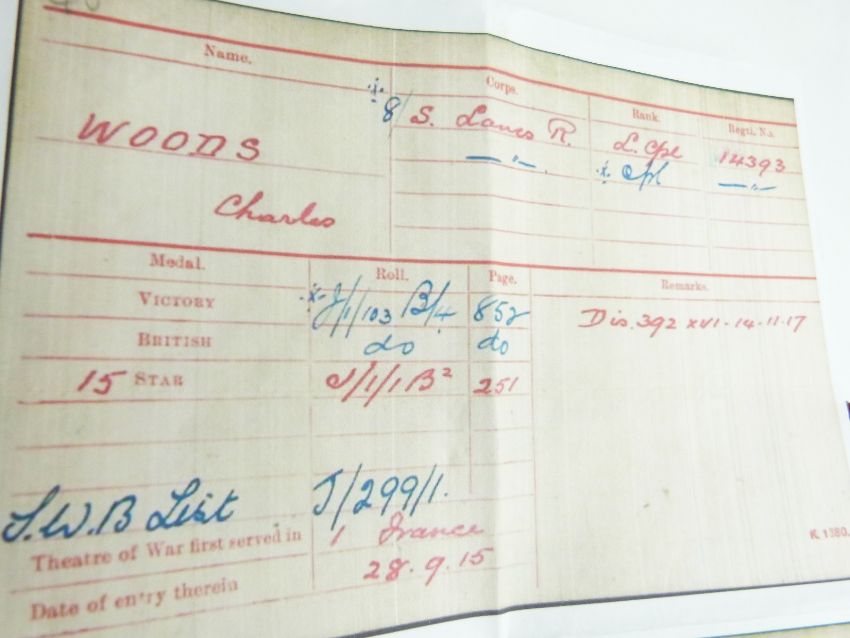 Name. Corps. Rank. Regtl. No.
WOODS 8/ S. Lancs R. L. Cpl 14393
Charles — " — . Cpl — " —
Medal. Roll. Page. Remarks.
VICTORY J/1/103 B/4 852 Dis. 392 XVI - 14.11.17
BRITISH do do
15 STAR J/1/1 B2 251
S.W.B List J/299/1.
Theatre of War first served in 1 France
Date of entry therein 28.9.15
K. 1380.